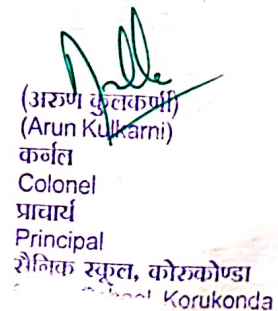 (अरुण कुलकर्णी)
(Arun Kulkarni)
कर्नल
Colonel
प्राचार्य
Principal
सैनिक स्कूल, कोरुकोण्डा
School Korukonda